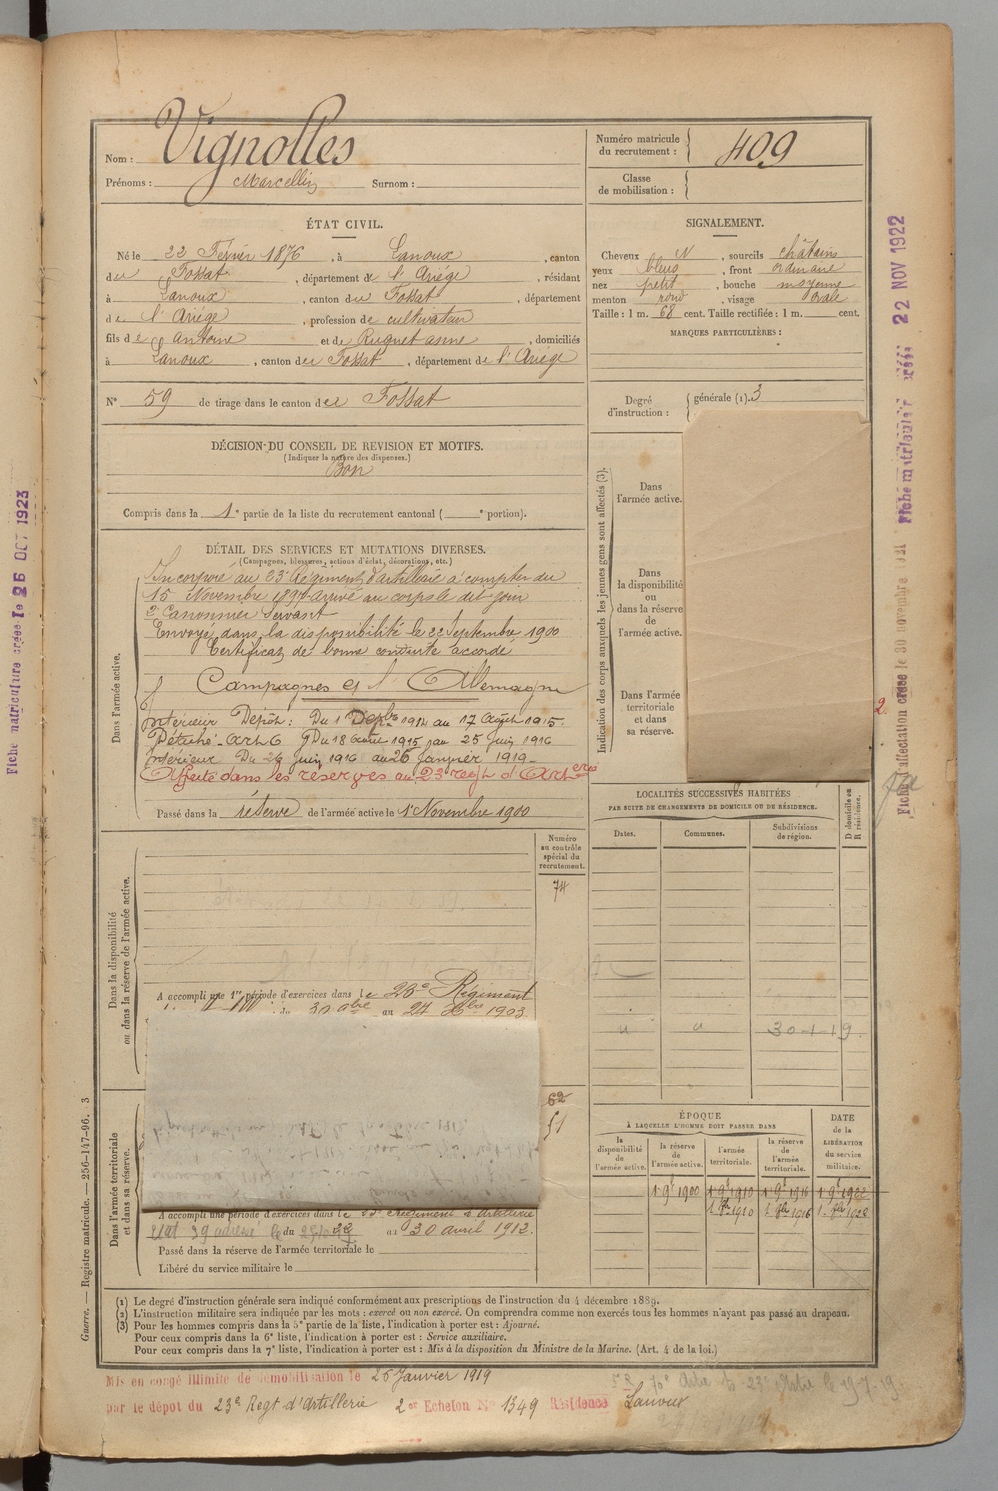 Nom : Vignolles
Prénoms : Marcellin Surnom :
Numéro matricule du recrutement : 409
Classe de mobilisation :
ÉTAT CIVIL.
Né le 22 Février 1876, à Lanoux, canton
du Fossat, département de l'Ariège, résidant
à Lanoux, canton du Fossat, département
de l'Ariège, profession de cultivateur
fils de Antoine et de Ruquet anne, domiciliés
à Lanoux, canton du Fossat, département de l'Ariège
N° 59 de tirage dans le canton de Fossat
SIGNALEMENT.
Cheveux N, sourcils châtains
yeux bleus, front ordinaire
nez petit, bouche moyenne
menton rond, visage ovale
Taille : 1 m. 68 cent. Taille rectifiée : 1 m. cent.
MARQUES PARTICULIÈRES :
Degré d'instruction : générale (1). 3
DÉCISION DU CONSEIL DE REVISION ET MOTIFS.
(Indiquer la nature des dispenses.)
Bon
Compris dans la 1e partie de la liste du recrutement cantonal ( e portion).
DÉTAIL DES SERVICES ET MUTATIONS DIVERSES.
(Campagnes, blessures, actions d'éclat, décorations, etc.)
Dans l'armée active.
Incorporé au 23e Régiment d'artillerie à compter du
15 Novembre 1897 arrivé au corps le dit jour
2e Canonnier Servant
Envoyé dans la disponibilité le 22 Septembre 1900
Certificat de bonne conduite accordé
Campagnes
Allemagne
Intérieur Dépôt : Du 1 1914 au 17 Août 1915.
Du 18 Août 1915 au 25 Juin 1916
Intérieur Du 26 Juin 1916 au 26 Janvier 1919
Affecté dans les réserves au 23e regt d'Arterie
Passé dans la réserve de l'armée active le 1er Novembre 1900
Indication des corps auxquels les jeunes gens sont affectés (3).
Dans l'armée active.
Dans la disponibilité ou dans la réserve de l'armée active.
Dans l'armée territoriale et dans sa réserve.
LOCALITÉS SUCCESSIVES HABITÉES
PAR SUITE DE CHANGEMENTS DE DOMICILE OU DE RÉSIDENCE.
Dates. Communes. Subdivisions de région. D domicile ou R résidence.
30-1-19
Dans la disponibilité ou dans la réserve de l'armée active.
Numéro au contrôle spécial du recrutement.
74
A accompli une 1re période d'exercices dans le 23e Régiment
au 24 Xbre 1903
62
51
Dans l'armée territoriale et dans sa réserve.
A accompli une période d'exercices dans le 23e Régiment d'Artillerie
du 22 au 30 avril 1912.
Passé dans la réserve de l'armée territoriale le
Libéré du service militaire le
ÉPOQUE
À LAQUELLE L'HOMME DOIT PASSER DANS
la disponibilité de l'armée active. la réserve de l'armée active. l'armée territoriale. la réserve de l'armée territoriale.
DATE de la LIBÉRATION du service militaire.
1 9e 1900 1 9e 1910 1 9e 1916 1 9e 1922
(1) Le degré d'instruction générale sera indiqué conformément aux prescriptions de l'instruction du 4 décembre 1889.
(2) L'instruction militaire sera indiquée par les mots : exercé ou non exercé. On comprendra comme non exercés tous les hommes n'ayant pas passé au drapeau.
(3) Pour les hommes compris dans la 5e partie de la liste, l'indication à porter est : Ajourné.
Pour ceux compris dans la 6e liste, l'indication à porter est : Service auxiliaire.
Pour ceux compris dans la 7e liste, l'indication à porter est : Mis à la disposition du Ministre de la Marine. (Art. 4 de la loi.)
Mis en congé illimité de démobilisation le 26 Janvier 1919
par le dépôt du 23e Regt d'Artillerie 2e Echelon N° 1349 Résidence Lanoux
Guerre. — Registre matricule. — 256-147-96. 3
Fiche matriculaire créée le 26 OCT 1923
Fiche matriculaire créée 22 NOV 1922
Fiche d'affectation créée le 30 novembre 1921
2